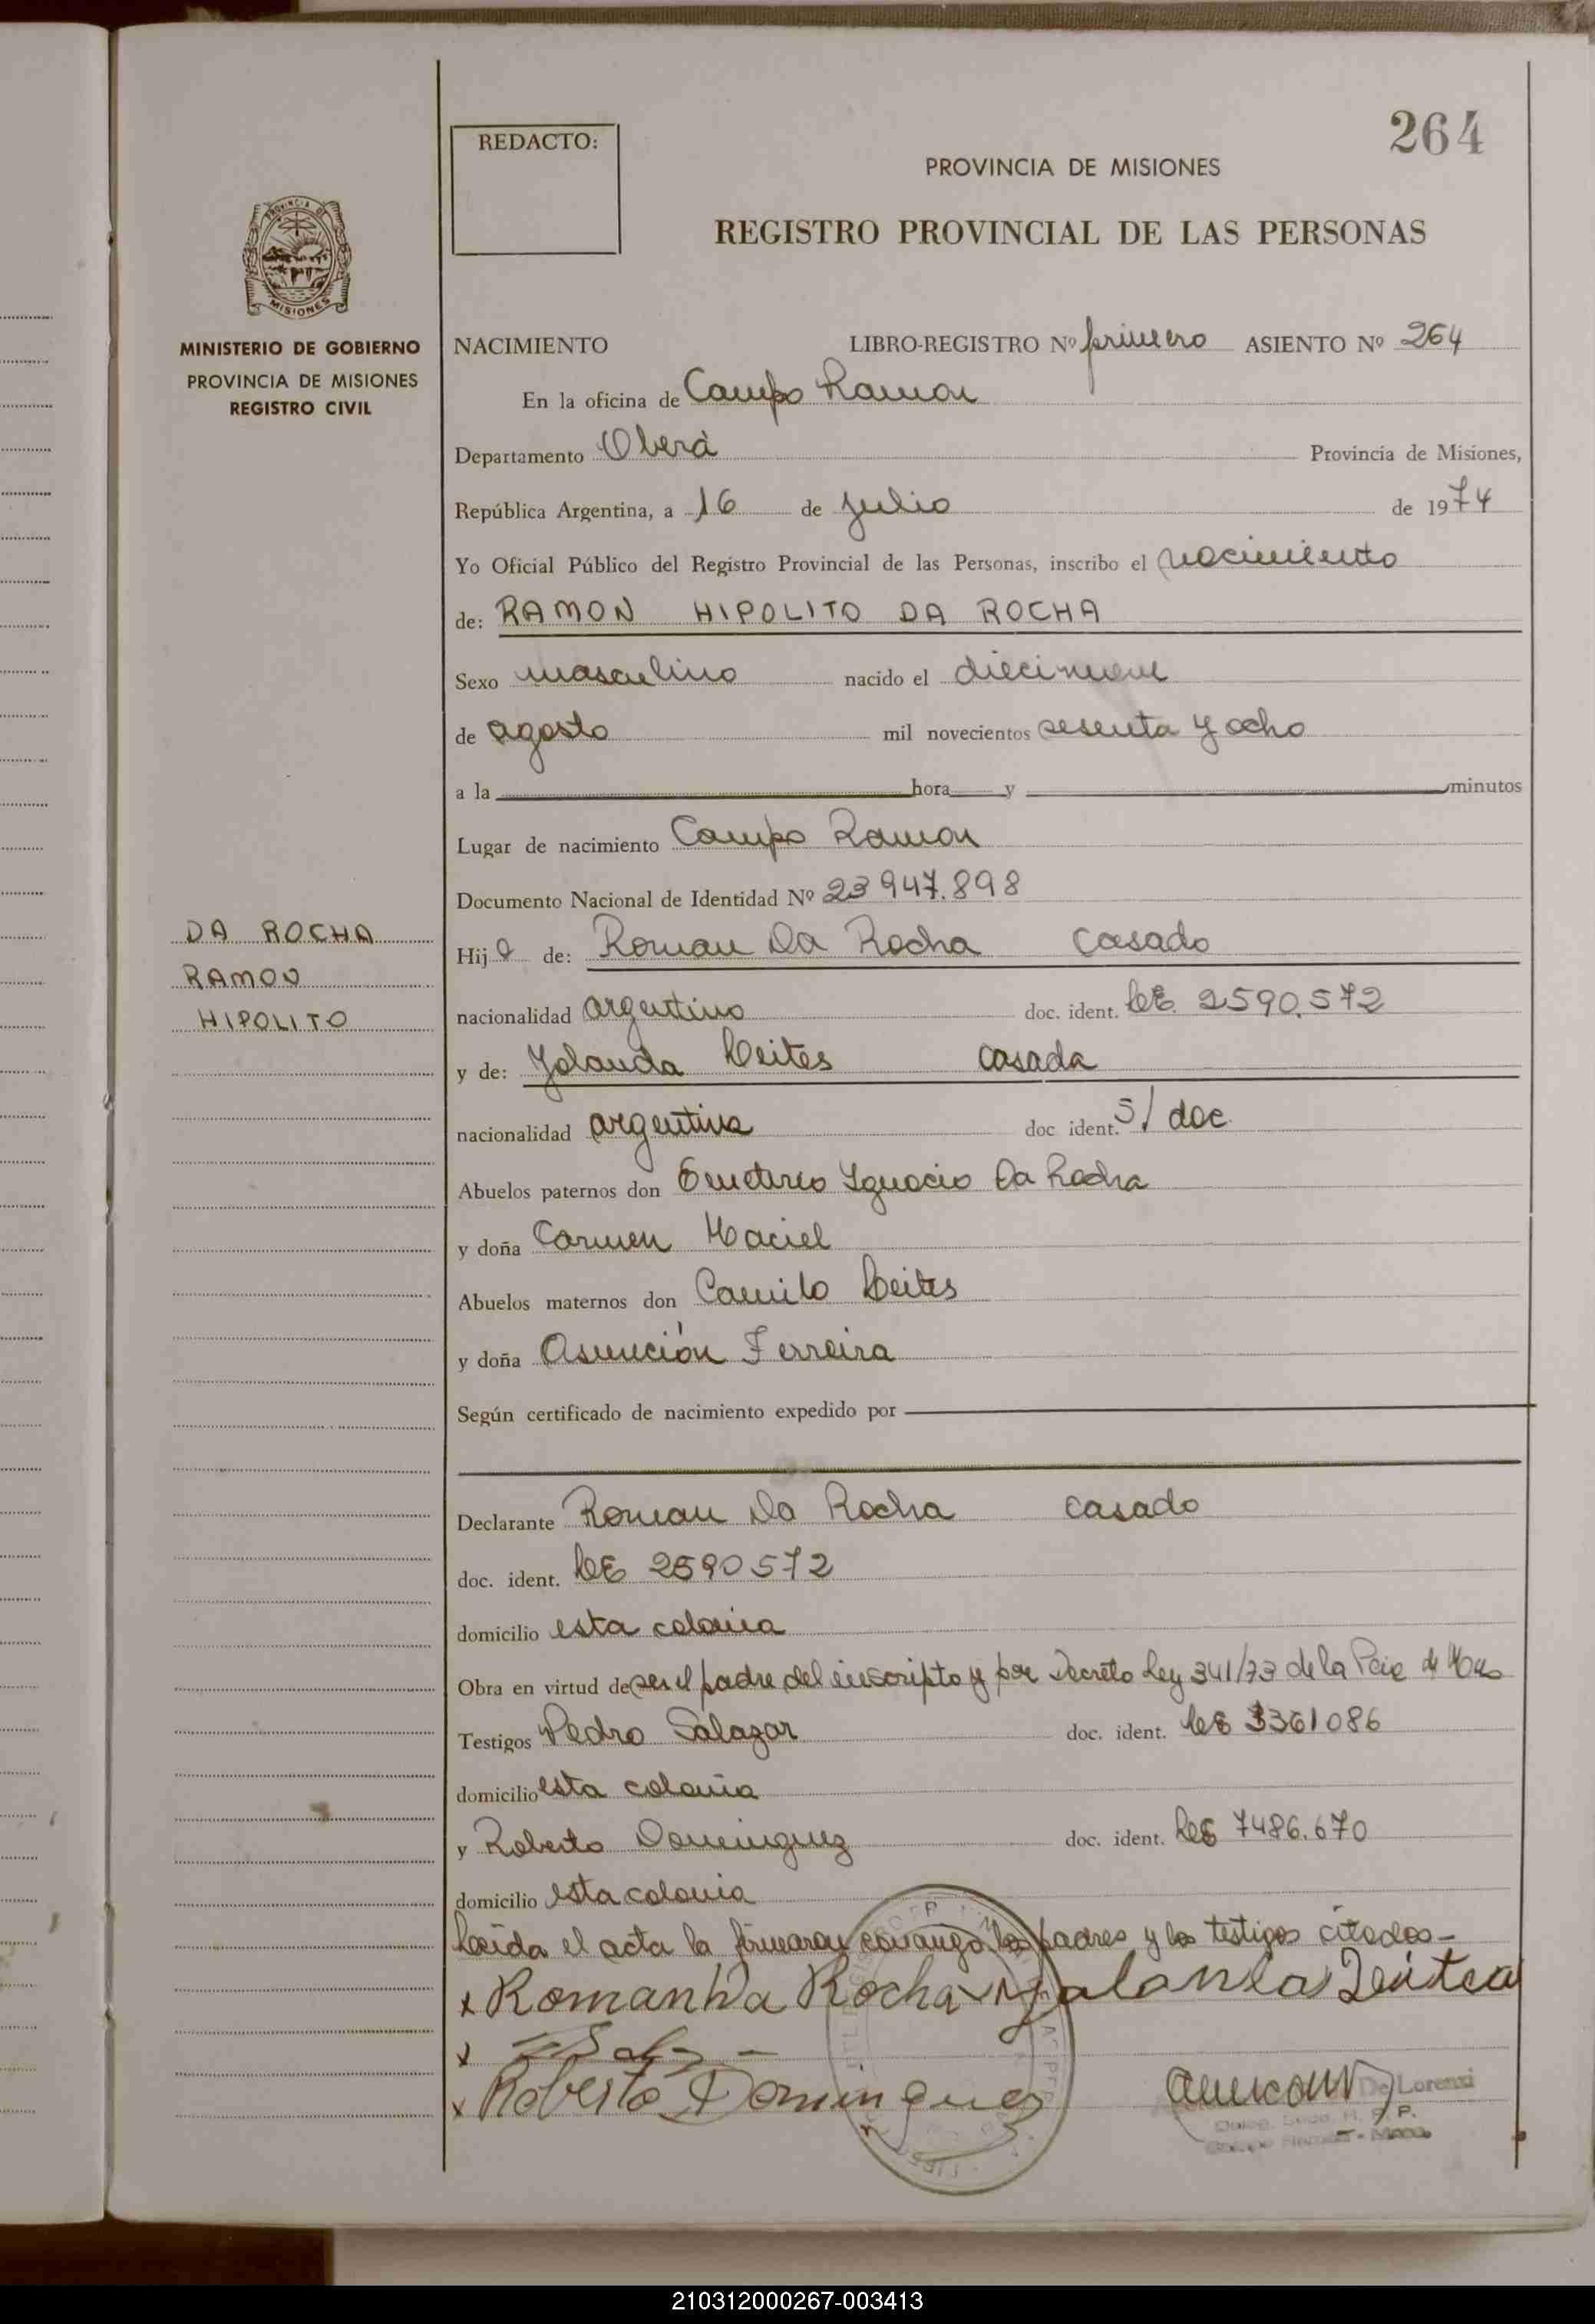 264
REDACTO:
PROVINCIA DE MISIONES
REGISTRO PROVINCIAL DE LAS PERSONAS
PROVINCIA DE
MISIONES
MINISTERIO DE GOBIERNO
PROVINCIA DE MISIONES
REGISTRO CIVIL
NACIMIENTO LIBRO-REGISTRO Nº primero ASIENTO Nº 264
En la oficina de Campo Ramon
Departamento Oberá Provincia de Misiones,
República Argentina, a 16 de julio de 1974
Yo Oficial Público del Registro Provincial de las Personas, inscribo el nacimiento
de: RAMON HIPOLITO DA ROCHA
Sexo masculino nacido el diecinueve
de agosto mil novecientos sesenta y ocho
a la hora y minutos
Lugar de nacimiento Campo Ramon
Documento Nacional de Identidad Nº 23947.898
DA ROCHA
RAMON
HIPOLITO
Hijo de: Roman Da Rocha casado
nacionalidad argentino doc. ident. LE 2590.572
y de: Yolanda Leites casada
nacionalidad argentina doc ident. S/ doc.
Abuelos paternos don Emeterio Ignacio Da Rocha
y doña Carmen Maciel
Abuelos maternos don Camilo Leites
y doña Asunción Ferreira
Según certificado de nacimiento expedido por
Declarante Roman Da Rocha casado
doc. ident. LE 2590572
domicilio esta colonia
Obra en virtud de ser el padre del inscripto y por Decreto Ley 341/73 de la Pcia de Mnes
Testigos Pedro Salazar doc. ident. LE 3361086
domicilio esta colonia
y Roberto Dominguez doc. ident. LE 7486.670
domicilio esta colonia
Leida el acta la firmaron conmigo los padres y los testigos citados-
x Roman Da Rocha x
x
x Roberto Dominguez
De Lorenzi